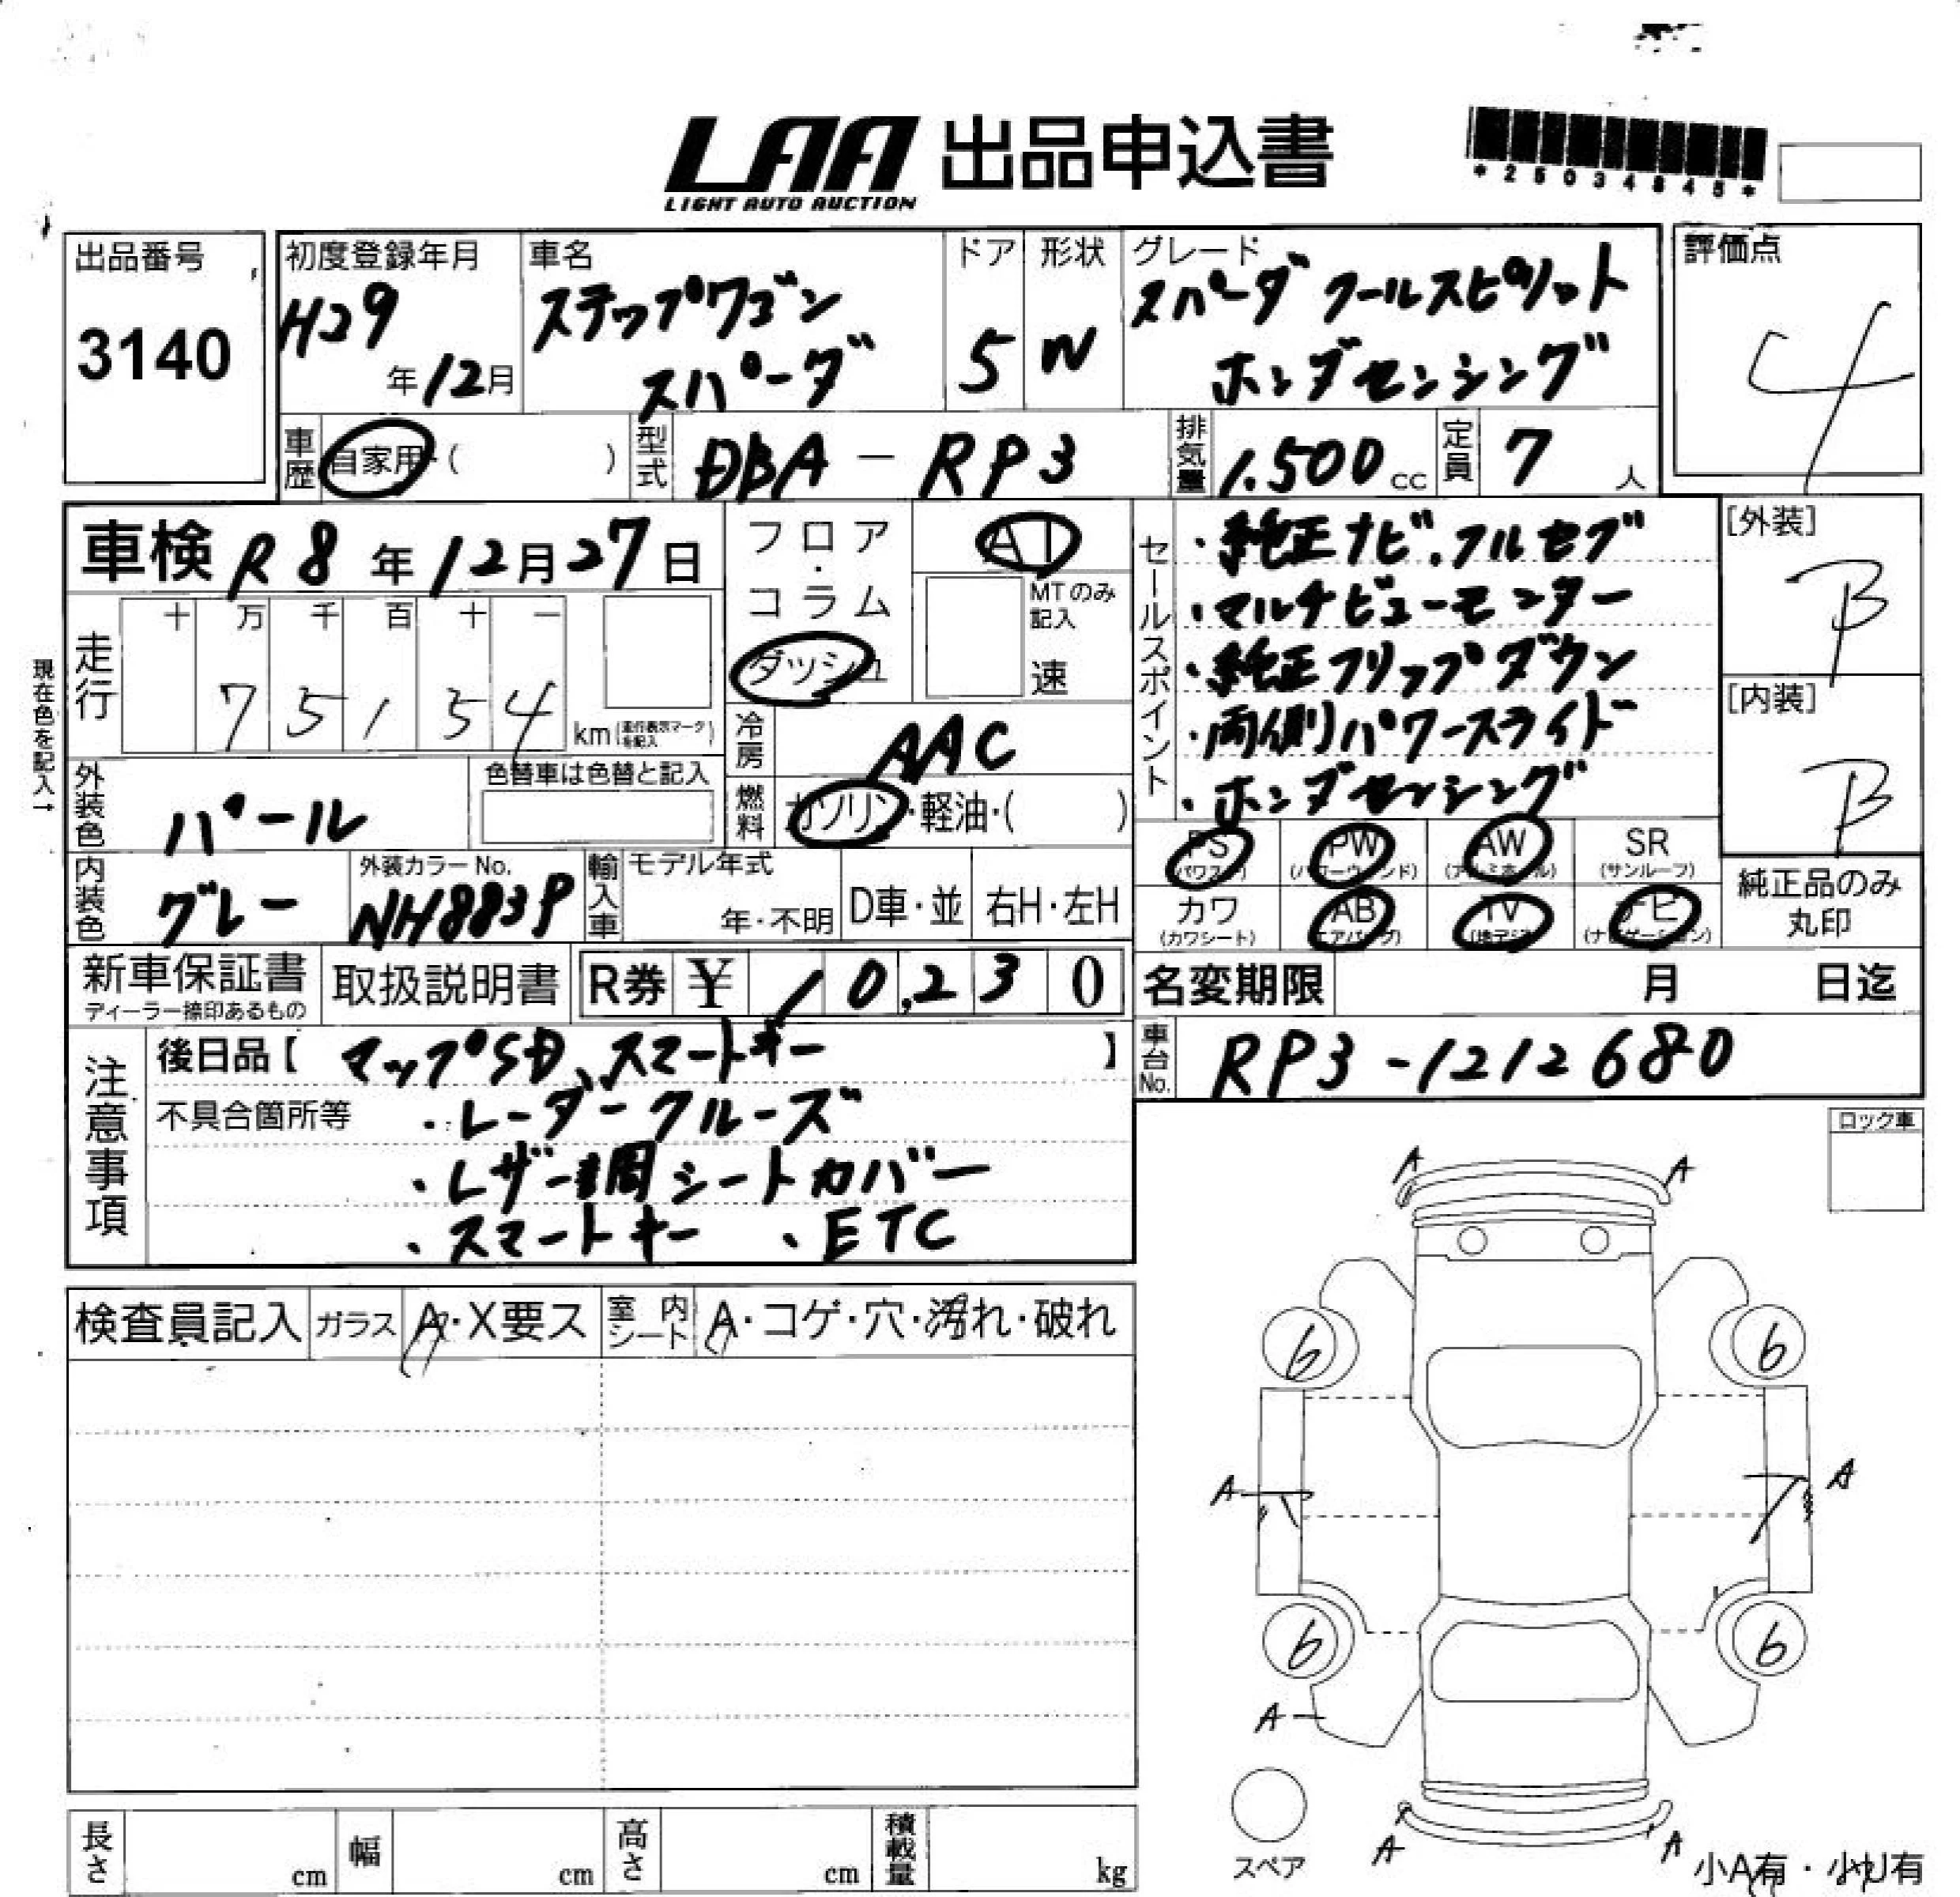 LAA 出品申込書
LIGHT AUTO AUCTION
出品番号
3140
初度登録年月
H29年12月
車名
ステップワゴン
スパーダ
ドア
5
形状
W
グレード
スパーダ クールスピリット
ホンダセンシング
評価点
4
車歴 自家用・( )
型式 DBA-RP3
排気量 1.500cc
定員 7人
車検 R8年12月27日
フロア・コラム
ダッシュ
AT
MTのみ記入
速
セールスポイント
・純正ナビ、フルセグ
・マルチビューモニター
・純正フリップダウン
・両側パワースライド
・ホンダセンシング
[外装]
B
[内装]
B
現在色を記入→
走行
十 万 千 百 十 一
7 5 1 5 4 km (走行表示マークを記入)
冷房 AAC
外装色 パール
色替車は色替と記入
燃料 ガソリン・軽油・( )
PS (パワステ) PW (パワーウィンド) AW (アルミホイル) SR (サンルーフ)
カワ (カワシート) AB (エアバッグ) TV (地デジ) ナビ (ナビゲーション)
純正品のみ丸印
内装色 グレー
外装カラーNo.
NH883P
輸入車
モデル年式
年・不明
D車・並
右H・左H
新車保証書
ディーラー捺印あるもの
取扱説明書
R券 ¥ 10,230
名変期限 月 日迄
注意事項
後日品【 マップSD、スマートキー 】
車台No. RP3-1212680
不具合箇所等 ・レーダークルーズ
・レザー調シートカバー
・スマートキー ・ETC
ロック車
検査員記入 ガラス A・X要ス 室内シート A・コゲ・穴・汚れ・破れ
A A
6 6
A A
6 6
A
A A
スペア
小A有・小U有
長さ cm 幅 cm 高さ cm 積載量 kg